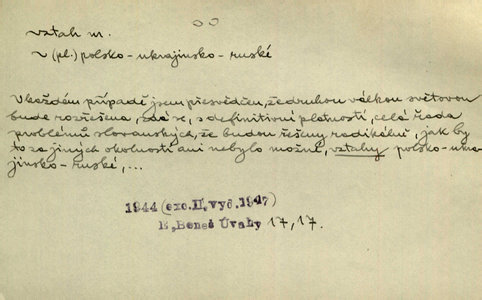 vztah m.
~ (pl.) polsko-ukrajinsko-ruské
V každém případě jsem přesvědčen, že druhou válkou světovou
bude rozřešena, zdá se, s definitivní platností, celá řada
problémů slovanských, že budou řešeny radikálně, jak by
to za jiných okolností ani nebylo možné, vztahy polsko-ukra-
jinsko-ruské, ...
1944 (exc. II, vyd. 1947)
E, Beneš Úvahy 17, 17.